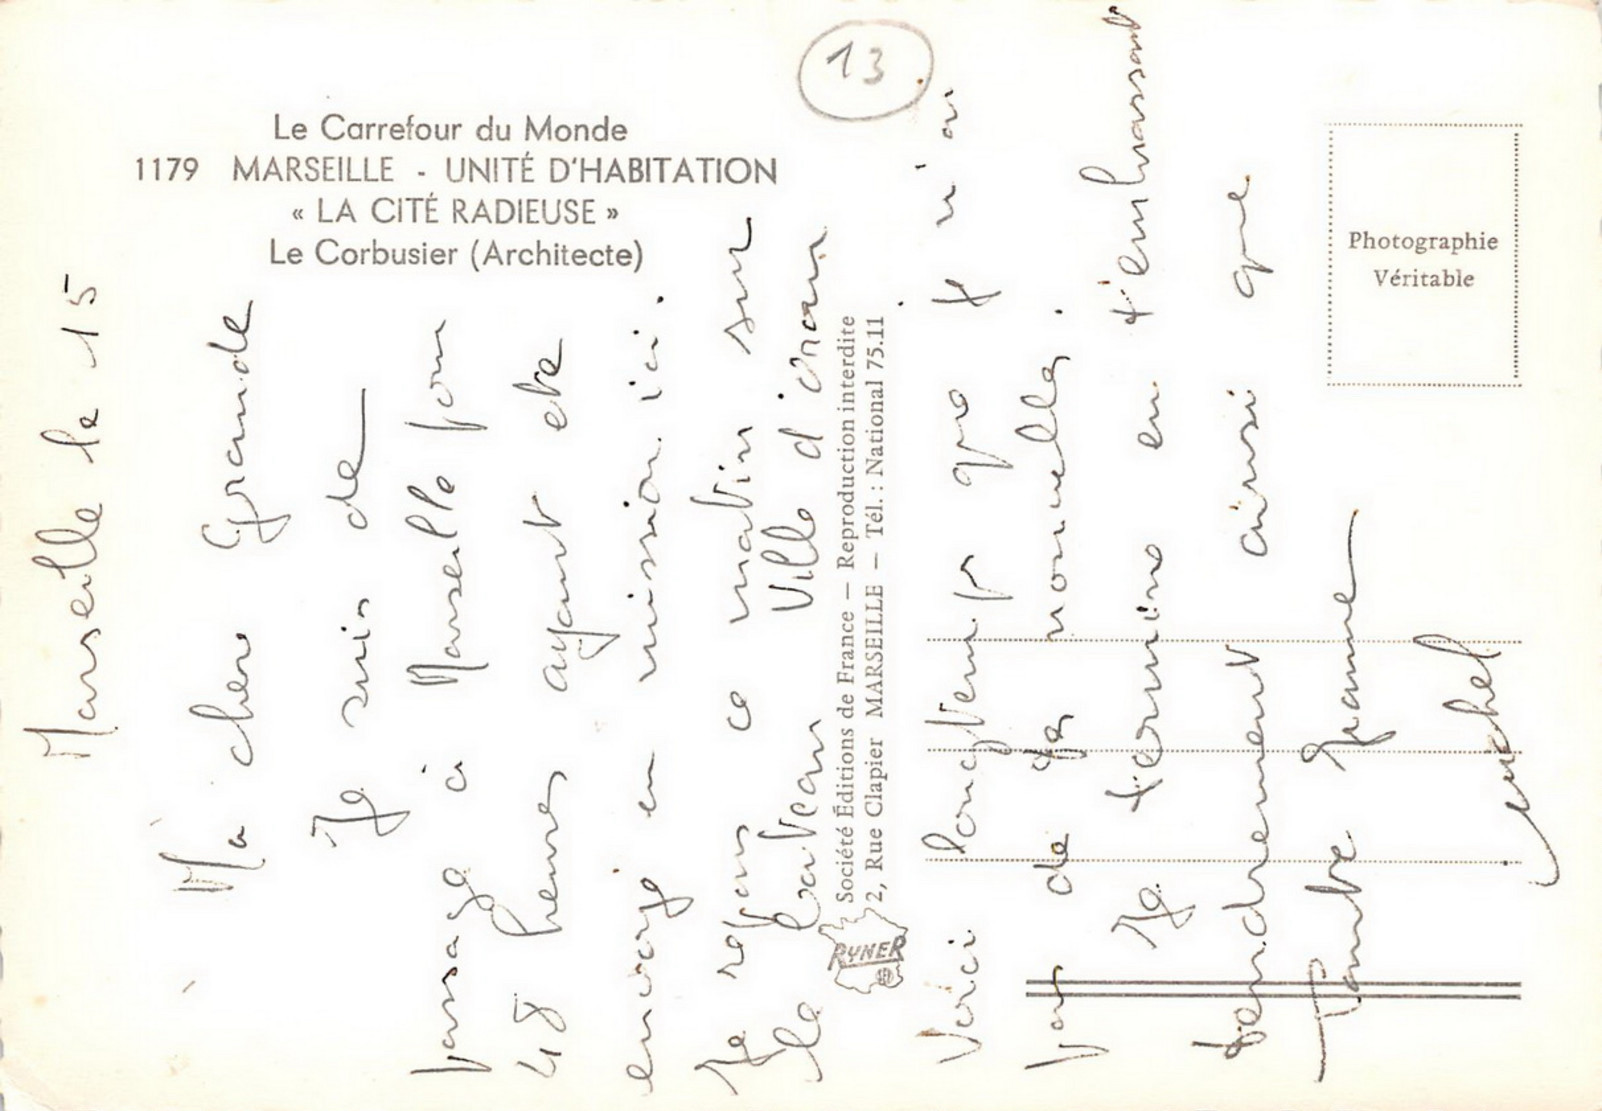 13
Le Carrefour du Monde
1179 MARSEILLE - UNITÉ D'HABITATION
« LA CITÉ RADIEUSE »
Le Corbusier (Architecte)
Photographie
Véritable
Société Éditions de France — Reproduction interdite
2, Rue Clapier MARSEILLE — Tél. : National 75.11
RYNER
Marseille le 15
Ma chere Grande
Je suis de
passage à Marseille pour
48 heures ayant ete
envoyé en mission ici.
Je repars ce matin sur
le bateau Ville d'oran
Voici longtemps que je n'ai
pas de tes nouvelles.
Je termine en t'embrassant
tendrement ainsi que
tante Jeanne
Michel